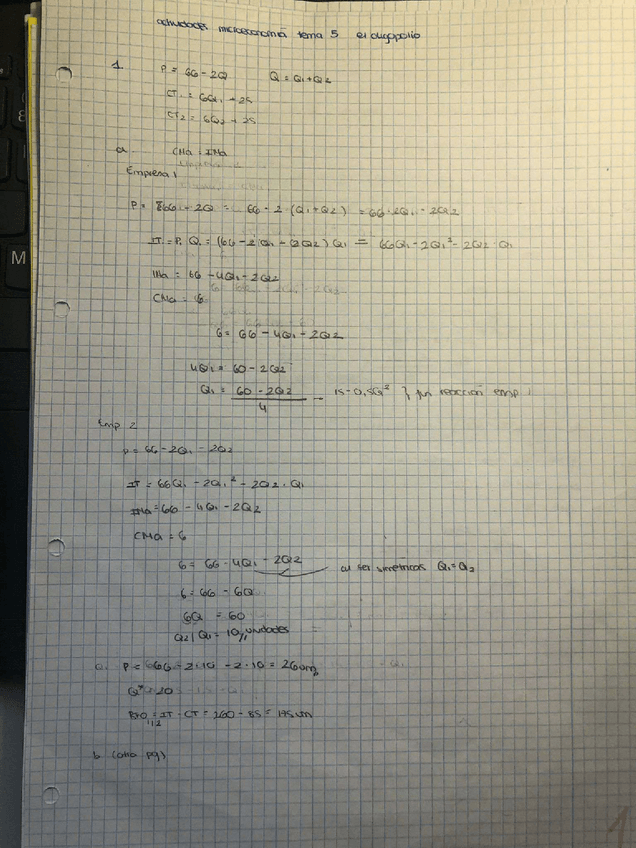 actividades microeconomía tema 5 el oligopolio
1. P = 66 - 2Q Q = Q1 + Q2
CT1 = 6Q1 + 25
CT2 = 6Q2 + 25
a. CMa = IMa
Empresa 1
P = 66 - 2Q = 66 - 2 · (Q1 + Q2) = 66 - 2Q1 - 2Q2
IT = P · Q1 = (66 - 2Q1 - 2Q2) Q1 = 66Q1 - 2Q1² - 2Q2 · Q1
IMa = 66 - 4Q1 - 2Q2
CMa = 6
6 = 66 - 4Q1 - 2Q2
4Q1 = 60 - 2Q2
Q1 = 60 - 2Q2 / 4 = 15 - 0,5Q2 } fun reacción emp 1
Emp 2
P = 66 - 2Q1 - 2Q2
IT = 66Q1 - 2Q1² - 2Q2 · Q1
IMa = 66 - 4Q1 - 2Q2
CMa = 6
6 = 66 - 4Q1 - 2Q2 al ser simétricas Q1 = Q2
6 = 66 - 6Q
6Q = 60
Q2 / Q1 = 10 unidades
P = 66 - 2 · 10 - 2 · 10 = 26 um
Q* = 20
BTO 1,2 = IT - CT = 260 - 85 = 175 um
b (otra pg)
1